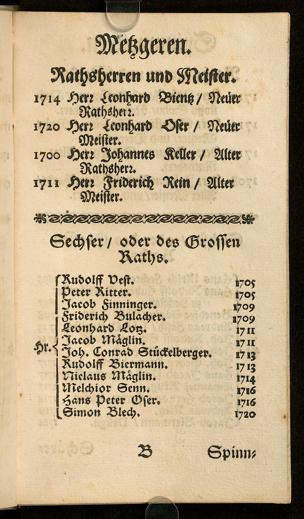 Metzgeren.
Rathsherren und Meister.
1714 Herr Leonhard Bientz / Neüer
Rathsherr.
1720 Herr Leonhard Oser / Neüer
Meister.
1700 Herr Johannes Keller / Alter
Rathsherr.
1711 Herr Friderich Rein / Alter
Meister.
Sechser / oder des Grossen
Raths.
Rudolff Vest. 1705
Peter Ritter. 1705
Jacob Finninger. 1709
Friderich Bulacher. 1709
Leonhard Lotz. 1711
Jacob Mäglin. 1711
Hr. Joh. Conrad Stückelberger. 1713
Rudolff Biermann. 1713
Niclaus Mäglin. 1714
Melchior Senn. 1716
Hans Peter Oser. 1716
Simon Blech. 1720
B Spinn-